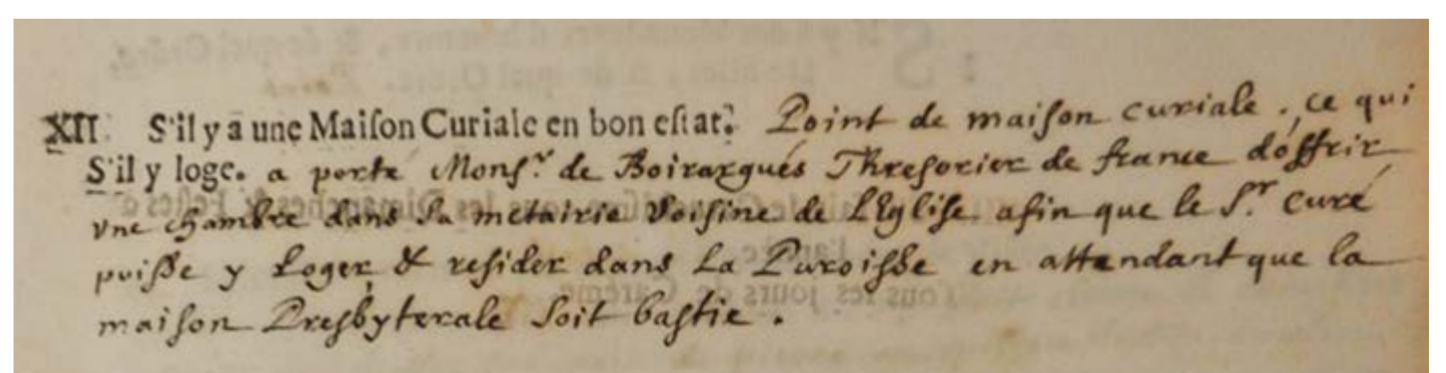 XII. S'il y a une Maiſon Curiale en bon eſtat? Point de maiſon curiale. ce qui
S'il y loge. a porté Monſ.r de Boirargues Threſorier de france d'offrir
vne chambre dans sa metairie voiſine de L'Egliſe afin que le S.r Curé
puiſſe y Loger & reſider dans La Paroiſſe en attendant que la
maiſon Preſbyterale ſoit baſtie.